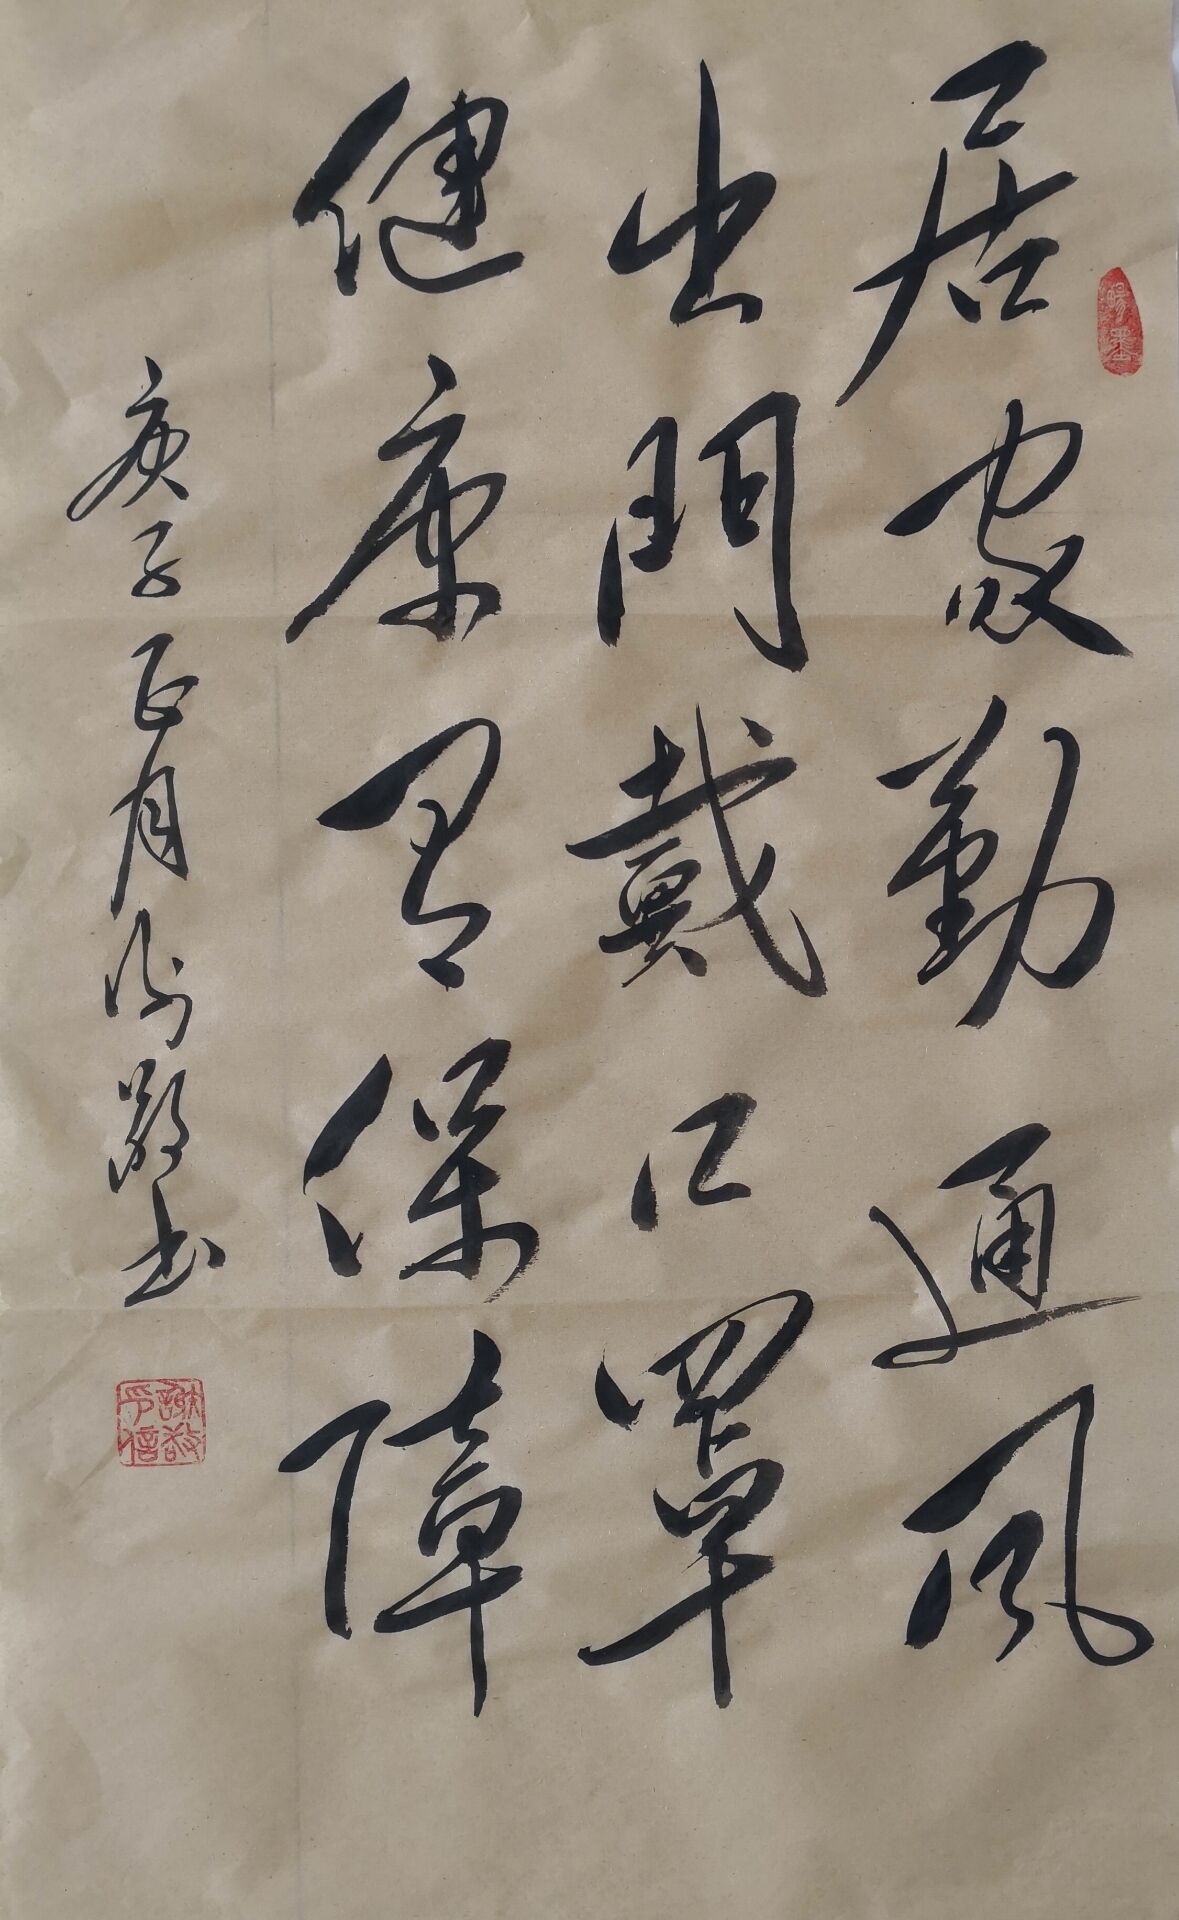 居家勤通風
出門戴口罩
健康有保障
庚子正月謝敬書